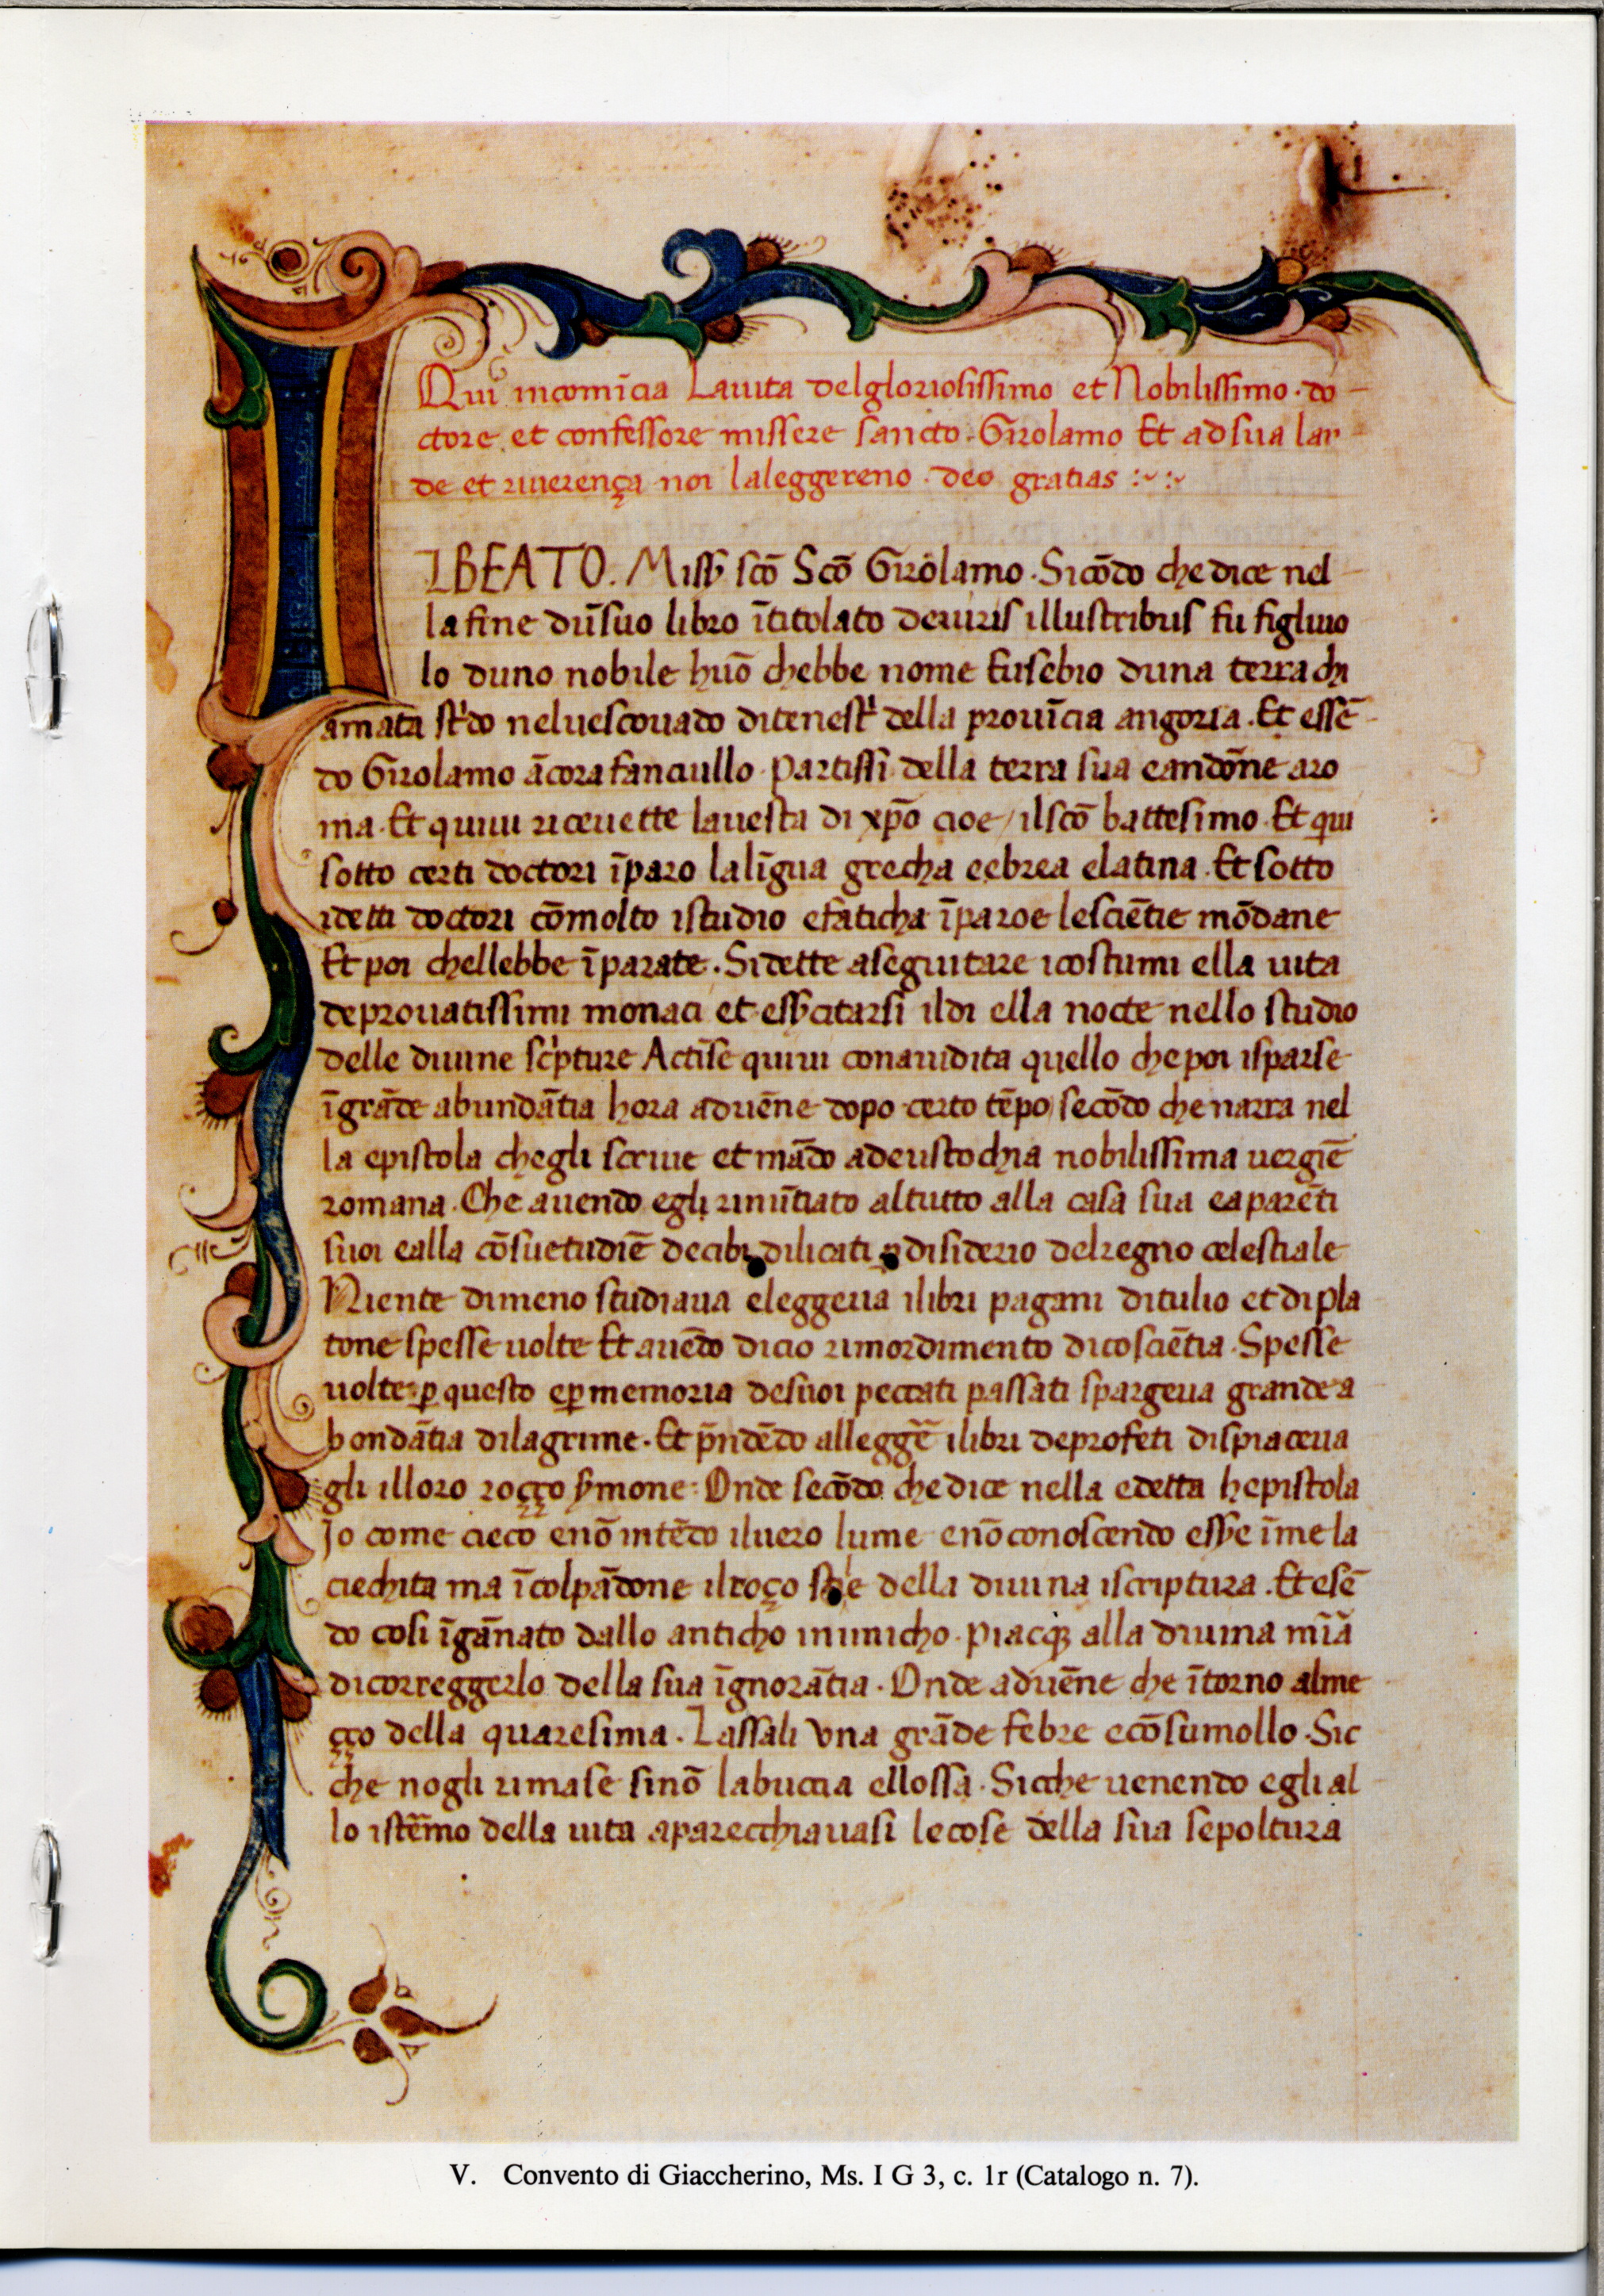 Qui incomīcia Lauita delgloriosissimo et Nobilissimo · do
ctore et confessore missere sancto · Girolamo Et adsua lau
de et riuerença noi laleggereno · deo gratias
IBEATO. Miss̄ scō Scō Girolamo · Sicōdo che dice nel
la fine dūsuo libro ītitolato deuiris illustribus fu figluio
lo duno nobile huō chebbe nome Eusebio duna terra chi
amata st'do neluescouado ditenest' della prouīcia angoria · Et essē
do Girolamo ācora fanciullo · Partissi della terra sua eandōne aro
ma · Et quiui riceuette lauesta di xp̄o cioe / ilscō battesimo · Et qui
sotto certi doctori īparo lalīgua grecha eebrea elatina · Et sotto
idetti doctori cōmolto istudio efaticha īparoe lesciētie mōdane
Et poi chellebbe īparate · Sidette aseguitare icostumi ella uita
deprouatissimi monaci et ess̄citarsi ildi ella nocte nello studio
delle diuine sc'pture Actīse quiui conauidita quello chepoi isparse
īgrāde abundātia hora aduēne dopo certo tēpo secōdo che narra nel
la epistola chegli scriue et mādo adeustochia nobilissima uergīe
romana · Che auendo egli rinūtiato altutto alla casa sua eaparēti
suoi ealla cōsuetudīe decibi dilicati disiderio delregno celestiale
Niente dimeno studiaua eleggeua ilibri pagani ditulio et dipla
tone spesse uolte Et auēdo dicio rimordimento dicosciētia · Spesse
uolte ꝑ questo eꝑ memoria desuoi peccati passati spargeua grande a
bondātia dilagrime · Et p̄ndēdo alleggē̄ ilibri deprofeti dispiaceua
gli illoro roçço s̄mone : Onde secōdo che dice nella edetta hepistola
Io come cieco enō intēdo iluero lume enō conoscendo ess̄e īme la
ciechita ma īcolpādone ilroço della diuina iscriptura · Et esē
do cosi īgānato dallo anticho inimicho · piacq̄ alla diuina mīā
dicorreggerlo della sua īgnorātia · Onde aduēne che ītorno alme
çço della quaresima · Lassali vna grāde febre ecōsumollo · Sic
che nogli rimase sinō labuccia ellossa · Sicche uenendo egli al
lo istēmo della uita aparecchiauasi lecose della sua sepoltura
V. Convento di Giaccherino, Ms. I G 3, c. 1r (Catalogo n. 7).